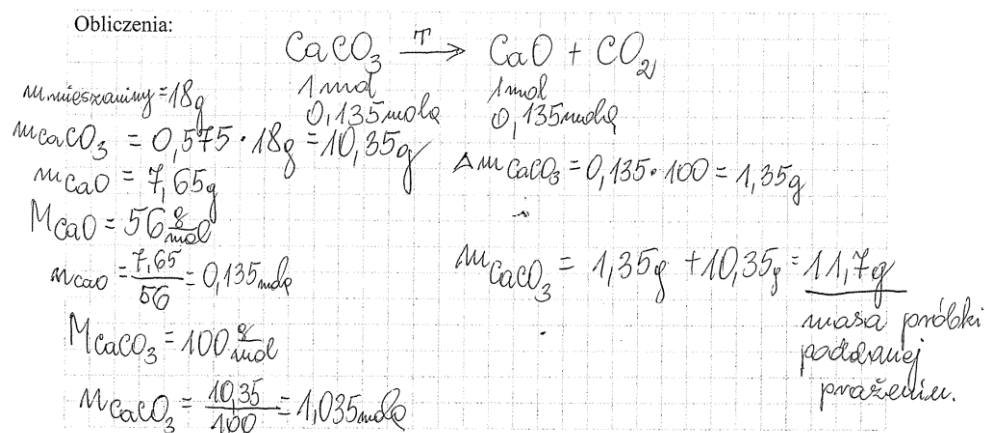 Obliczenia:
CaCO₃ —T→ CaO + CO₂
1 mol 1 mol
0,135 mola 0,135 mola
m mieszaniny = 18g
mCaCO₃ = 0,575 · 18g = 10,35g
mCaO = 7,65g
MCaO = 56 g/mol
nCaO = 7,65/56 = 0,135 mola
MCaCO₃ = 100 g/mol
nCaCO₃ = 10,35/100 = 1,035 mola
ΔmCaCO₃ = 0,135 · 100 = 1,35g
mCaCO₃ = 1,35g + 10,35g = 11,7g
masa próbki
poddanej
prażeniu.